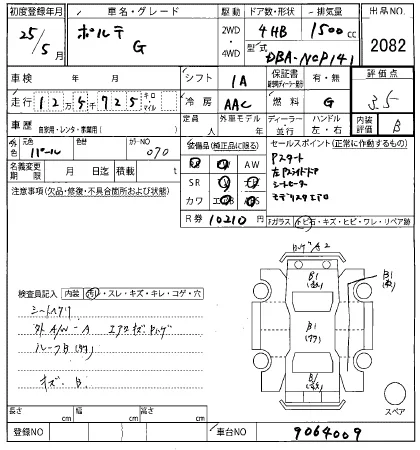 初度登録年月 車名・グレード 駆動 ドア数・形状 排気量 出品NO.
25/5月 ポルテ G 2WD・4WD 4HB 1500cc 2082
型式 DBA-NCP141
車検 年 月 シフト IA 保証書 有・無 評価点
走行 12万5千725 キロ・マイル 冷房 AAC 燃料 G 3.5
車歴 自家用・レンタ・事業用( ) 定員 人 外車モデル 年 ディーラー・並行 ハンドル 左・右 内装評価 B
外色 元色 パール 色替 カラーNO 070
装備品(純正品に限る) セールスポイント(正常に作動するもの)
AW Pスタート
名義変更期限 月 日迄 積載 t SR 左Pスライドドア
シートヒーター
注意事項(欠品・修復・不具合箇所および状態) カワ モデリスタエアロ
R券 10210円 Fガラス トビ石・キズ・ヒビ・ワレ・リペア跡
バックA2
検査員記入 内装 汚レ・スレ・キズ・キレ・コゲ・穴
シートヘタリ
外A/W-A エアロキズ
ルーフB
キズ B
スペア
長さ cm 幅 cm 高さ cm
登録NO 車台NO 9064009